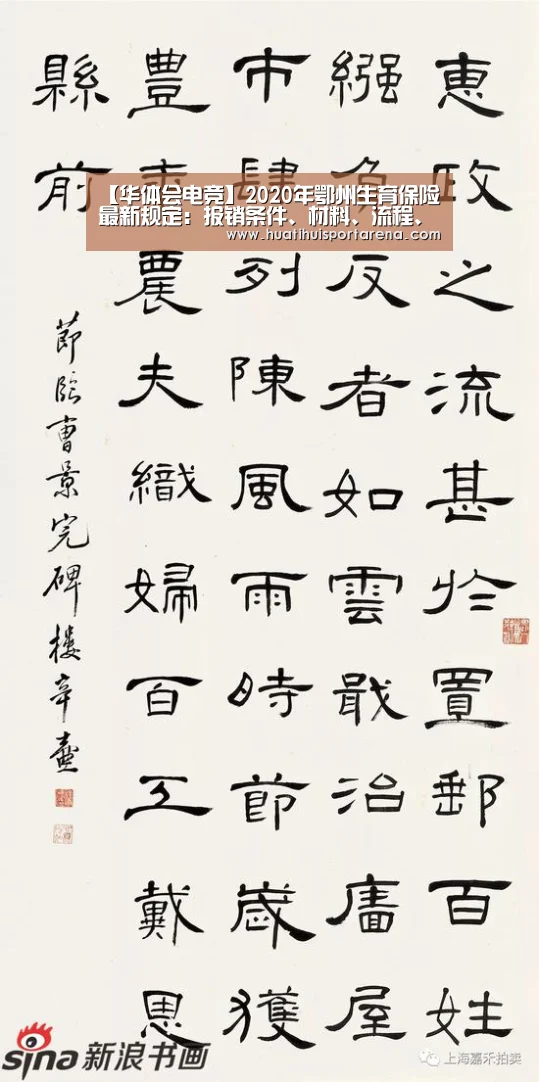 惠政之流甚於置郵百姓
繦負反者如雲戢治廧屋
市肆列陳風雨時節歲獲
豐年農夫織婦百工戴恩
縣前
節臨曹景完碑樓辛壺
【华体会电竞】2020年鄂州生育保险
最新规定：报销条件、材料、流程、
www.huatihuisportarena.com
sina 新浪书画
上海嘉禾拍卖